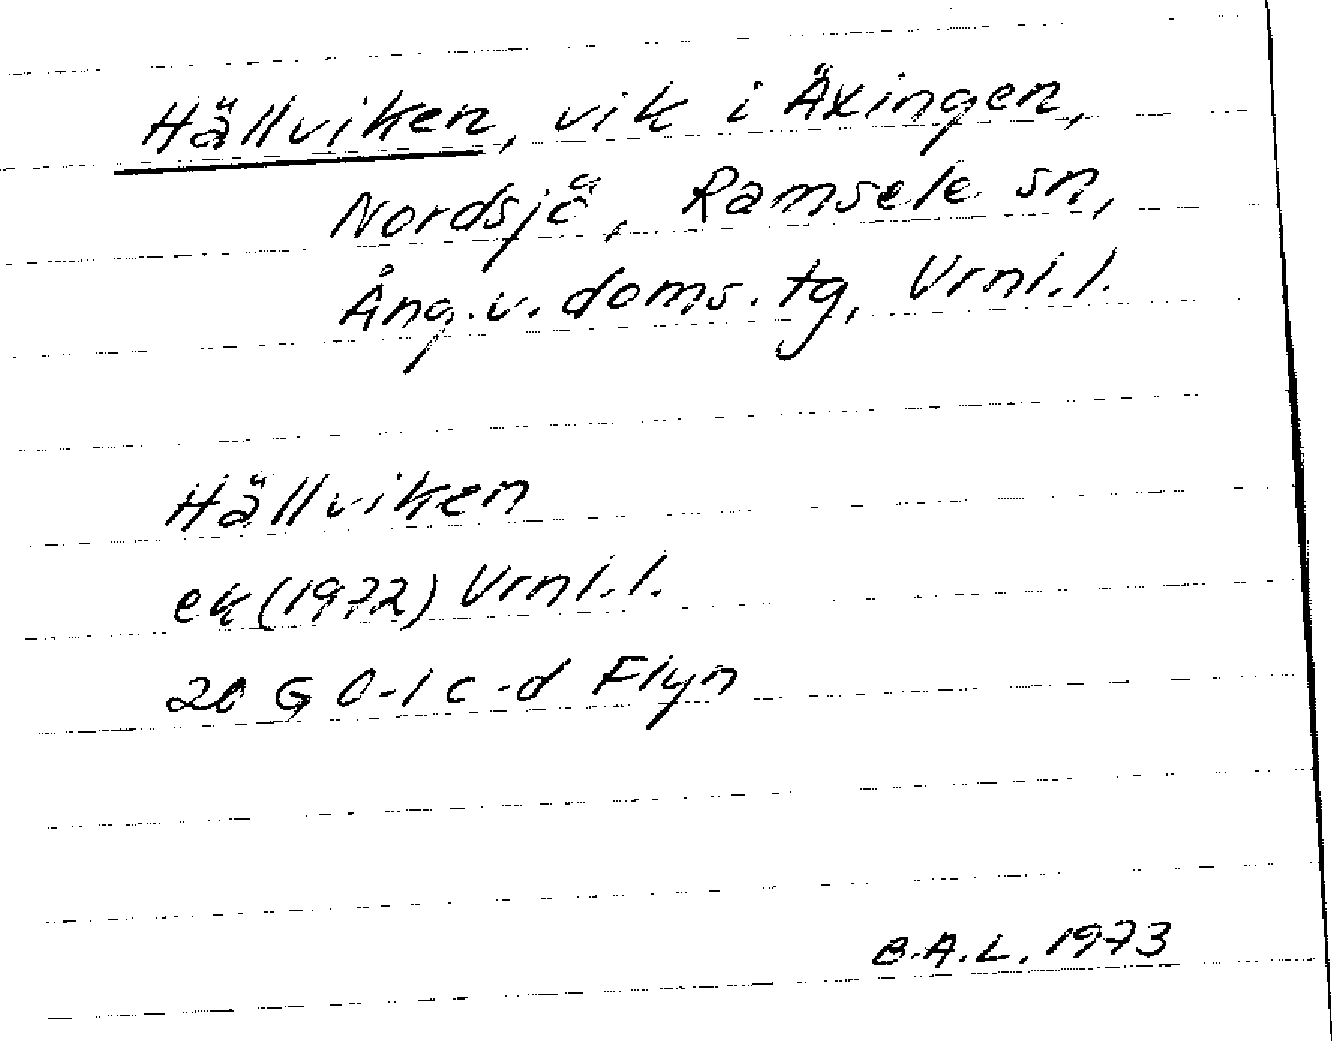 Hällviken, vik i Äxingen,
Nordsjö, Ramsele sn,
Ång.v.doms.tg, Vrnl.l.
Hällviken
ek(1972) Vrnl.l.
20 G 0-1 c-d Flyn
B.A.L. 1973